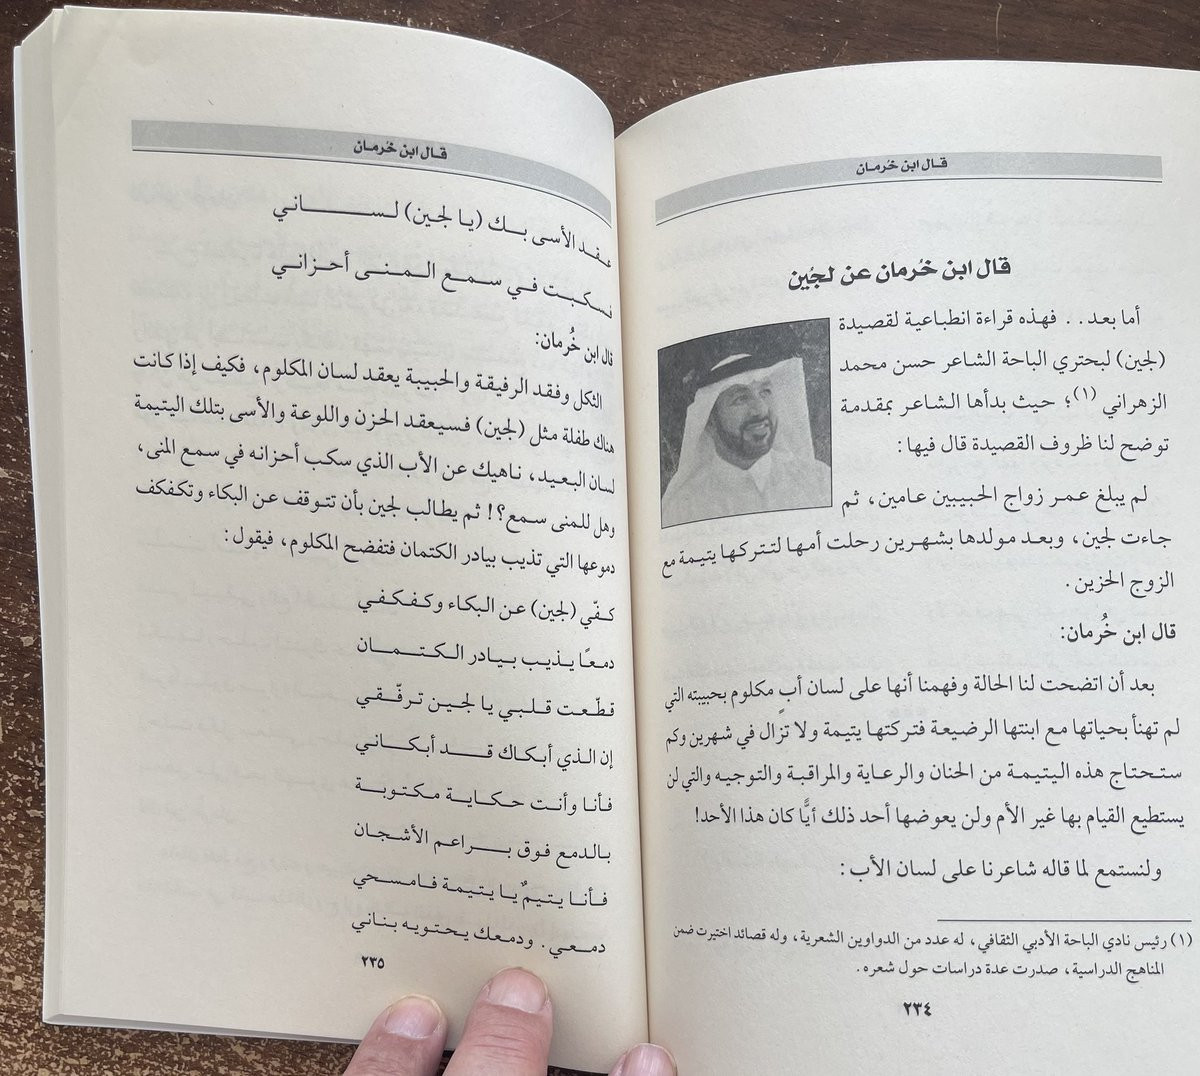 قال ابن خُرمان
قال ابن خُرمان عن لجُين
أما بعد.. فهذه قراءة انطباعية لقصيدة
(لجين) لبحتري الباحة الشاعر حسن محمد
الزهراني (١)؛ حيث بدأها الشاعر بمقدمة
توضح لنا ظروف القصيدة قال فيها:
لم يبلغ عمر زواج الحبيبين عامين، ثم
جاءت لجين، وبعد مولدها بشهرين رحلت أمها لتتركها يتيمة مع
الزوج الحزين.
قال ابن خُرمان:
بعد أن اتضحت لنا الحالة وفهمنا أنها على لسان أبٍ مكلوم بحبيبته التي
لم تهنأ بحياتها مع ابنتها الرضيعة فتركتها يتيمة ولا تزال في شهرين وكم
ستحتاج هذه اليتيمة من الحنان والرعاية والمراقبة والتوجيه والتي لن
يستطيع القيام بها غير الأم ولن يعوضها أحد ذلك أيًّا كان هذا الأحد!
ولنستمع لما قاله شاعرنا على لسان الأب:
(١) رئيس نادي الباحة الأدبي الثقافي، له عدد من الدواوين الشعرية، وله قصائد اختيرت ضمن
المناهج الدراسية، صدرت عدة دراسات حول شعره.
٢٣٤
قال ابن خُرمان
عقد الأسى بك (يا لجين) لساني
فسكبت في سمع المنى أحزاني
قال ابن خُرمان:
الثكل وفقد الرفيقة والحبيبة يعقد لسان المكلوم، فكيف إذا كانت
هناك طفلة مثل (لجين) فسيعقد الحزن واللوعة والأسى بتلك اليتيمة
لسان البعيد، ناهيك عن الأب الذي سكب أحزانه في سمع المنى،
وهل للمنى سمع؟! ثم يطالب لجين بأن تتوقف عن البكاء وتكفكف
دموعها التي تذيب بيادر الكتمان فتفضح المكلوم، فيقول:
كفّي (لجين) عن البكاء وكفكفي
دمعًا يذيب بيادر الكتمان
قطّعت قلبي يا لجين ترفّقي
إن الذي أبكاك قد أبكاني
فأنا وأنت حكاية مكتوبة
بالدمع فوق براعم الأشجان
فأنا يتيمٌ يا يتيمة فامسحي
دمعي. ودمعك يحتويه بناني
٢٣٥